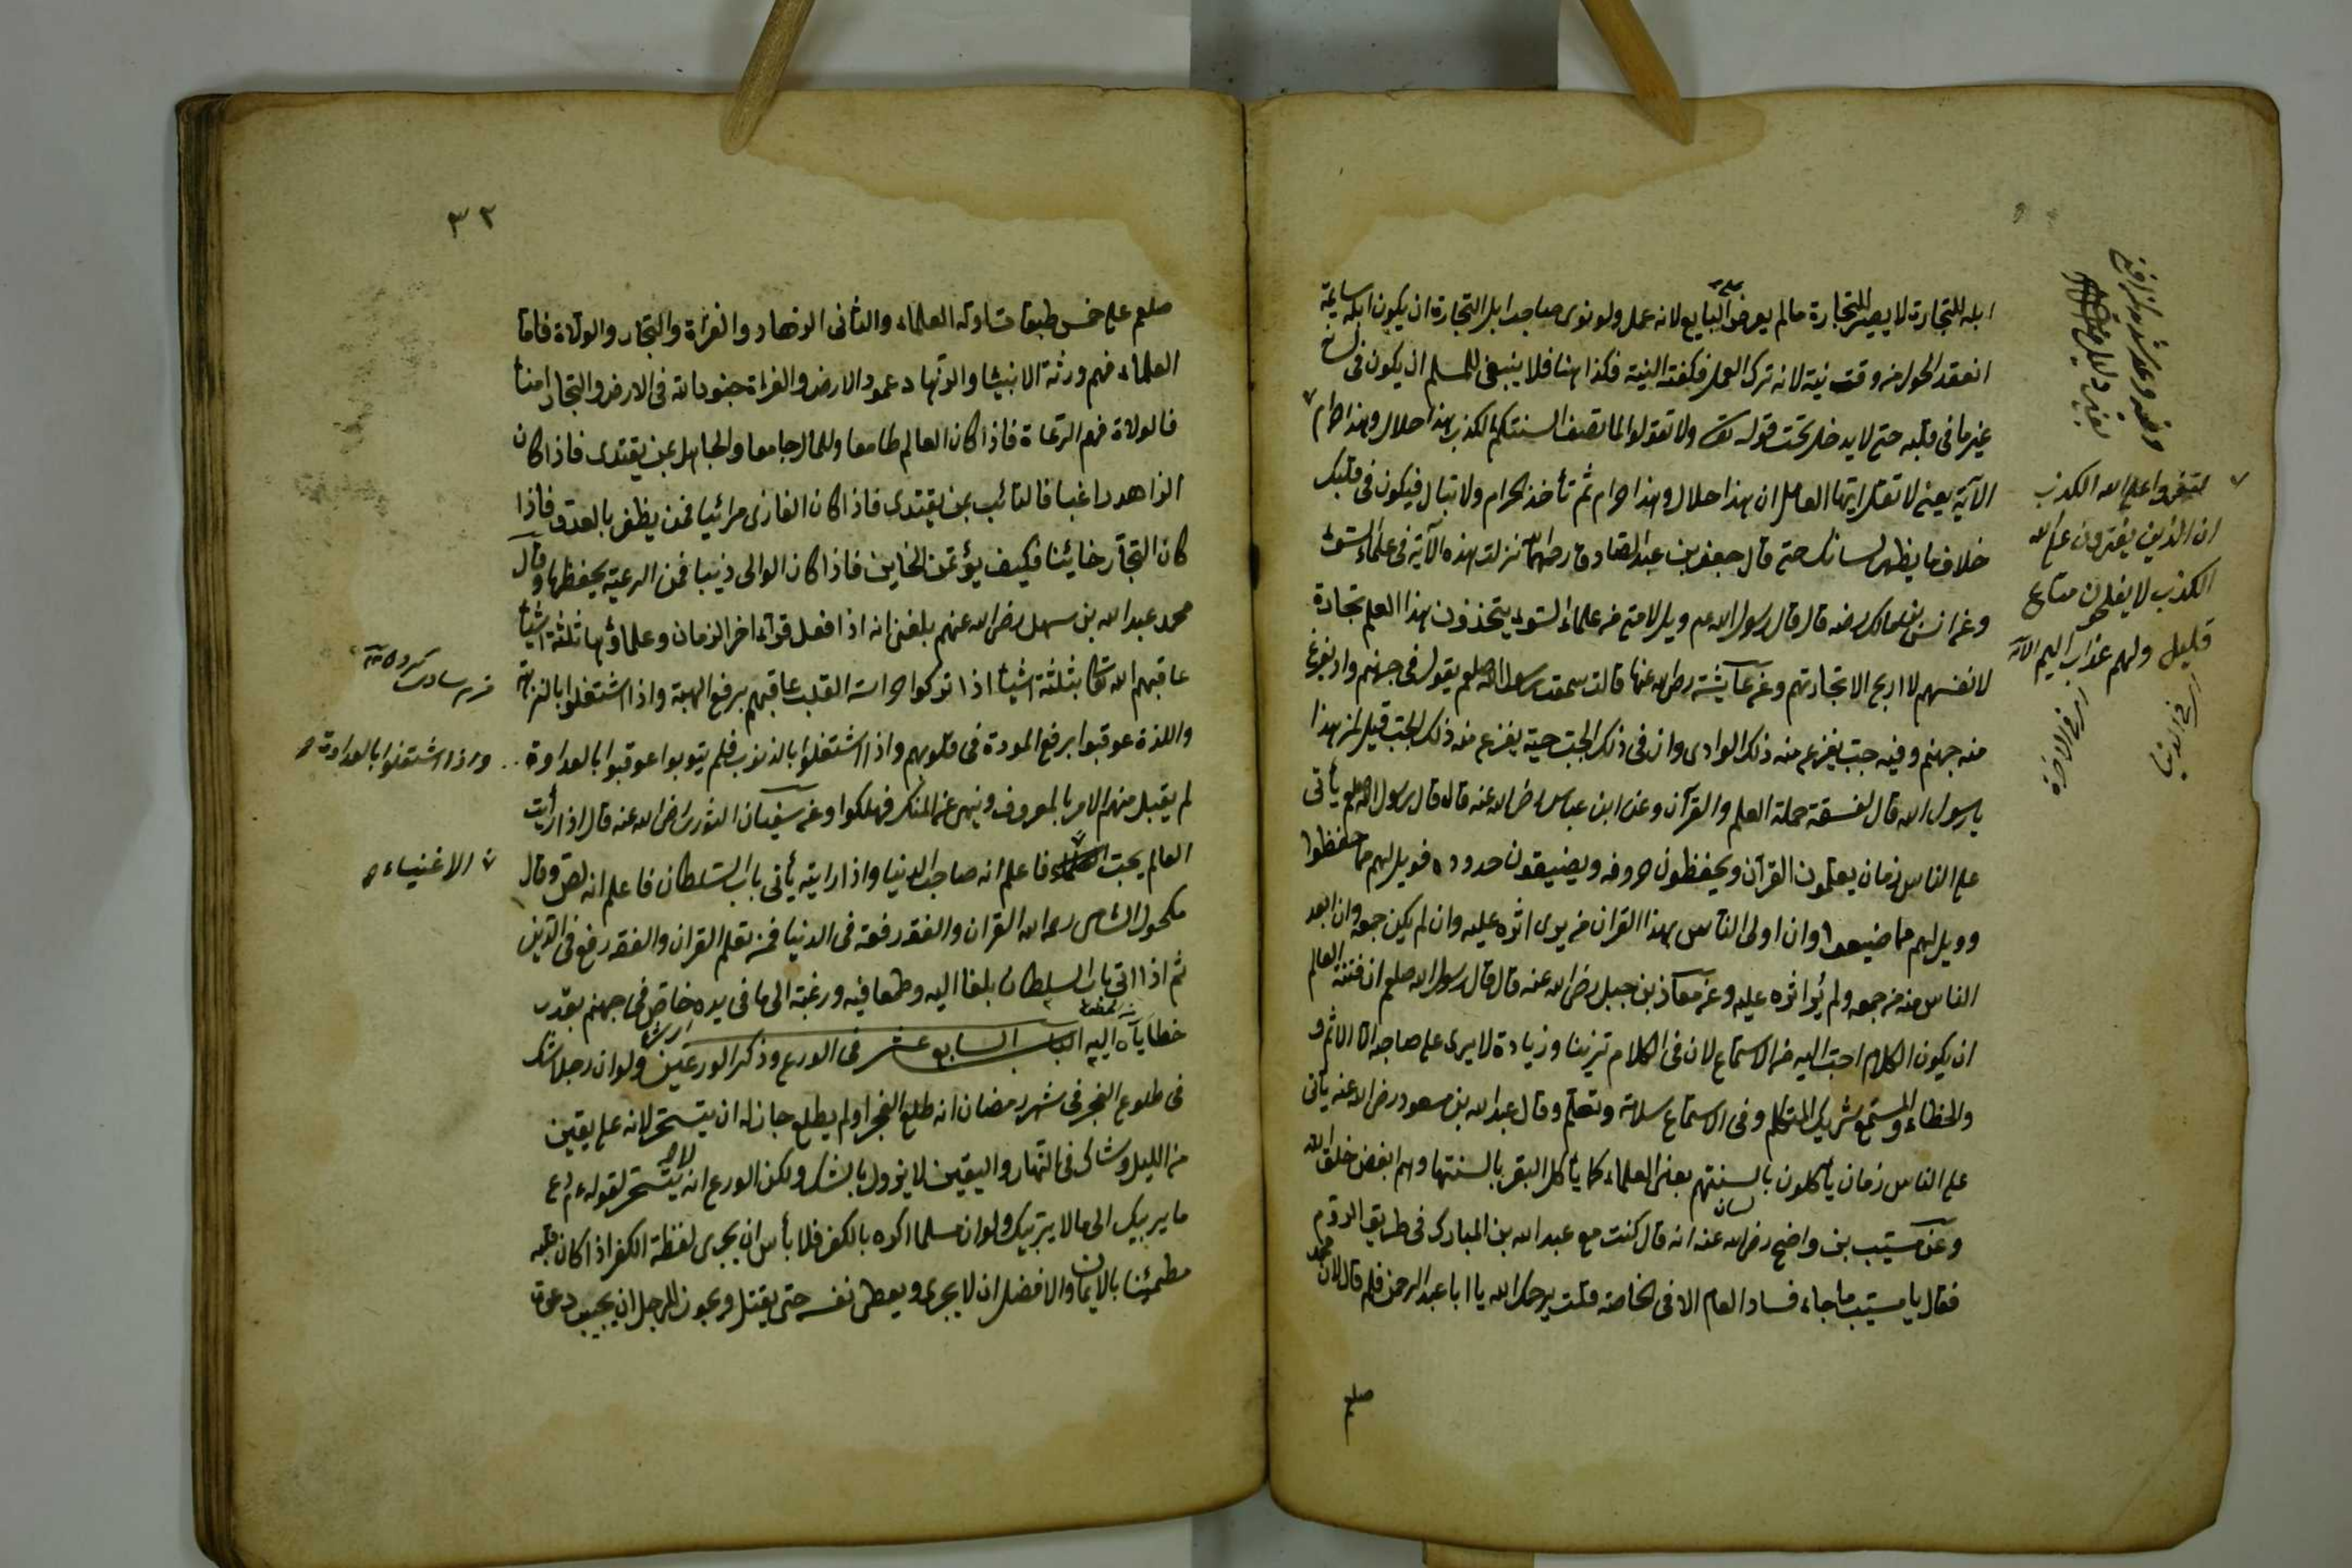 ابله للتجارة لا يصير للتجارة مالم يعرض البايع لانه عمل ولو نوى صاحب ابل التجارة ان يكون ابله سايمة
انعقد الحول من وقت نية لانه ترك العمل فكفته النية فكذا هنا فلا ينبغى للمسلم ان يكون فى لسانه
غير ما فى قلبه حتى لا يدخل تحت قوله تع ولا تقولوا لما تصف السنتكم الكذب هذا حلال وهذا حرام
الآية يعنى لا تقل ايها العامل ان هذا حلال وهذا حرام ثم تأخذ الحرام ولا تبال فيكون فى قلبك
خلاف ما يظهر لسانك حتى قال جعفر بن عبد الصادق نزلت هذه الآية فى علماء السوء
وعن انس بن مالك رضه قال قال رسول الله عم ويل لامتى من علماء السوء يتخذون بهذا العلم تجارة
لانفسهم لا اربح الا تجارتهم وعن عايشة رض الله عنها قالت سمعت رسول الله صلعم يقول فى جهنم واد يفزع
منه جهنم وفيه جب يفزع منه ذلك الوادى وان فى ذلك الجب حية يفزع منه ذلك الجب قيل لمن هذا
يا رسول الله قال لفسقة حملة العلم والقرآن وعن ابن عباس رض الله عنه قال قال رسول الله صلعم يأتى
على الناس زمان يعلمون القرآن ويحفظون حروفه ويضيعون حدوده فويل لهم مما حفظوا
وويل لهم مما ضيعوا وان اولى الناس بهذا القران من يرى اثره عليه وان لم يكن جمعه وان ابعد
الناس منه من جمعه ولم يُر اثره عليه وعن معاذ بن جبل رض الله عنه قال قال رسول الله صلعم ان فتنة العالم
ان يكون الكلام احب اليه من الاستماع لان فى الكلام تزينا وزيادة لا يرى على صاحبه الا الاثم و
والخطاء والمستمع شريك المتكلم وفى الاستماع سلامة وتعلم وقال عبد الله بن مسعود رض الله عنه يأتى
على الناس زمان يأكلون بالسنتهم يعنى العلماء كما يأكل البقر بالسنتها وهم ابغض خلق الله
وعن مسيب بن واضح رض الله عنه انه قال كنت مع عبد الله بن المبارك فى طريق الروم
فقال يا مسيب ما جاء فساد العام الا فى الخاصة قلت يرحمك الله يا ابا عبد الرحمن فلم قال لان محمد
صلعم
لتفتروا على الله الكذب
ان الذين يفترون على الله
الكذب لا يفلحون متاع
قليل ولهم عذاب اليم الآية
اى فى الدنيا
اى فى الآخرة
٣٢
صلعم على خمس طبقات اوله العلماء والثانى الزهاد والغزاة والتجار والولاة فاما
العلماء فهم ورثة الانبياء والزهاد عمود الارض والغزاة جنود الله فى الارض والتجار امناء
فالولاة فهم الرعاة فاذا كان العالم طامعا وللمال جامعا والجاهل بمن يقتدى فاذا كان
الزاهد راغبا فالتائب بمن يقتدى فاذا كان الغازى مرائيا فمن يظفر بالعدو فاذا
كان التجار خائنا فكيف يؤتمن الخاين فاذا كان الوالى ذئبا فمن الرعية يحفظها وقال
محمد عبد الله بن سهل رض الله عنهم بلغنى انه اذا فعل قراء اخر الزمان وعلماؤها ثلثة اشياء
عاقبهم الله تعا بثلثة اشياء اذا تركوا حراسة القلب عاقبهم برفع الهيبة واذا اشتغلوا بالنزهة
واللذة عوقبوا برفع المودة فى قلوبهم واذا اشتغلوا بالذنوب فلم يتوبوا عوقبوا بالعداوة
لم يقبل منهم الامر بالمعروف ونهى عن المنكر فهلكوا وعن سفيان الثورى رض الله عنه قال اذا رأيت
العالم يحب فاعلم انه صاحب الدنيا واذا رايته يأتى باب السلطان فاعلم انه لص وقال
مكحول الشامى رحمه الله القران والفقه رفعة فى الدنيا فمن تعلم القران والفقه رفع فى الدين
ثم اذا اتى باب السلطان بلغا اليه وطمعا فيه ورغبة الى ما فى يده خاض فى جهنم بقدر
خطاياه اليه الباب السابع عشر فى الورع وذكر الورعين ولو ان رجلا شك
فى طلوع الفجر فى شهر رمضان انه طلع الفجر او لم يطلع جاز له ان يتسحر لانه على يقين
من الليل وشاك فى النهار واليقين لا يزول بالشك ولكن الورع انه لا يتسحر لقوله عم دع
ما يريبك الى ما لا يريبك ولو ان مسلما اكره بالكفر فلا بأس ان يجرى لفظة الكفر اذا كان قلبه
مطمئنا بالايمان والافضل ان لا يجرى ويعطى نفسه حتى يقتل ويجوز للرجل ان يجيب دعوة
واذا اشتغلوا بالعداوة
الاغنياء